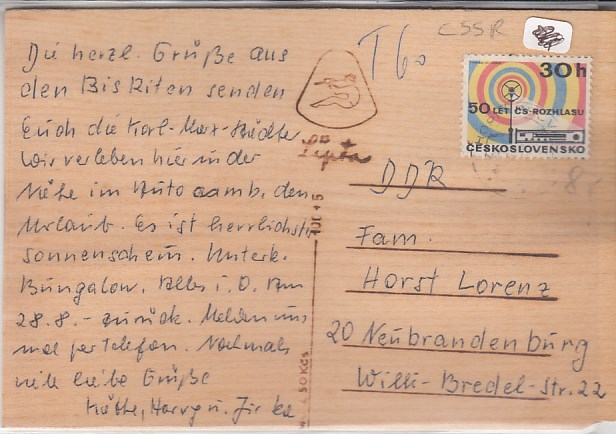 Die herzl. Grüße aus
den Biskiten senden
Euch die Karl-Marx-Städter
Wir verleben hier in der
Nähe im Autocamp. den
Urlaub. Es ist herrlichster
Sonnenschein. Unterk.
Bungalow. Alles i. O. Am
28.8. - zurück. Melden uns
mal per Telefon. Nochmals
viele liebe Grüße
Käthe, Harry u. Jirka
T 60
CSSR
30h
50 LET ČS-ROZHLASU
ČESKOSLOVENSKO
DDR
Fam.
Horst Lorenz
20 Neubrandenburg
Willi-Bredel-Str. 22
50 Kčs